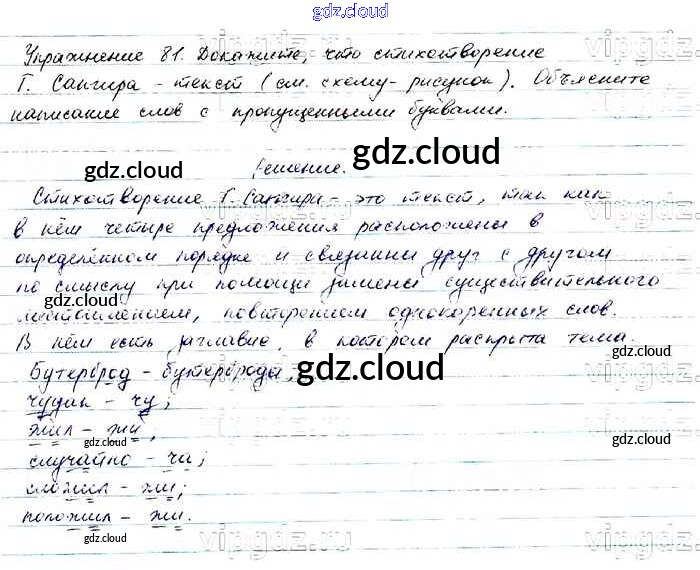 gdz.cloud
Упражнение 81. Докажите, что стихотворение
Г. Сапгира - текст (см. схему-рисунок). Объясните
написание слов с пропущенными буквами.
Решение.
Стихотворение Г. Сапгира - это текст, так как
в нём четыре предложения расположены в
определённом порядке и связаны друг с другом
по смыслу при помощи замены существительного
местоимением, повторением однокоренных слов.
В нём есть заглавие, в котором раскрыта тема.
Бутерброд - бутерброды;
чудак - чу;
жил - жи;
случайно - ча;
сложил - жи;
положил - жи.
gdz.cloud
gdz.cloud
gdz.cloud
gdz.cloud
gdz.cloud
gdz.cloud
gdz.cloud
gdz.cloud
gdz.cloud
gdz.cloud
gdz.cloud
gdz.cloud